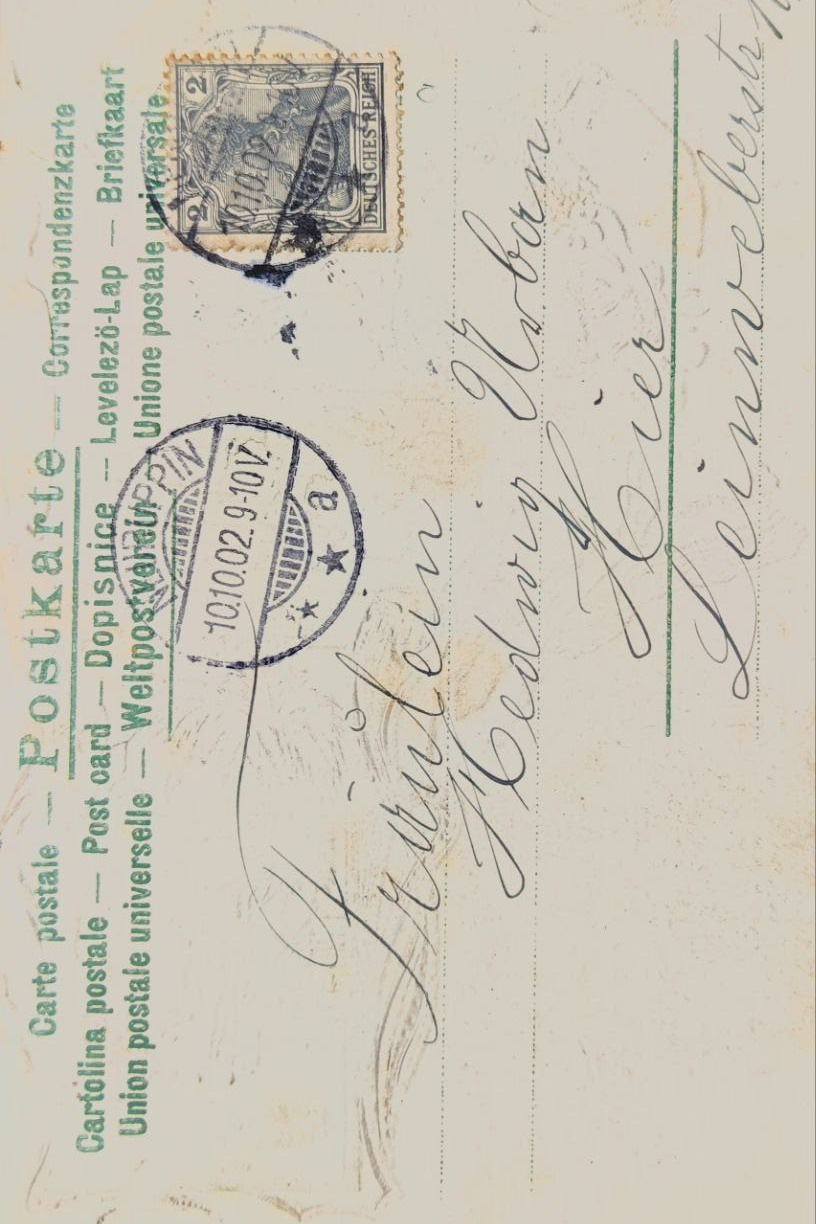 Carte postale — Postkarte — Correspondenzkarte
Cartolina postale — Post card — Dopisnice — Levelező-Lap — Briefkaart
Union postale universelle — Weltpostverein — Unione postale universale
2 2
DEUTSCHES REICH
10.10.02
RUPPIN
10.10.02. 9-10 V.
a
Fräulein
Hedwig
Hier
Leinweberstr